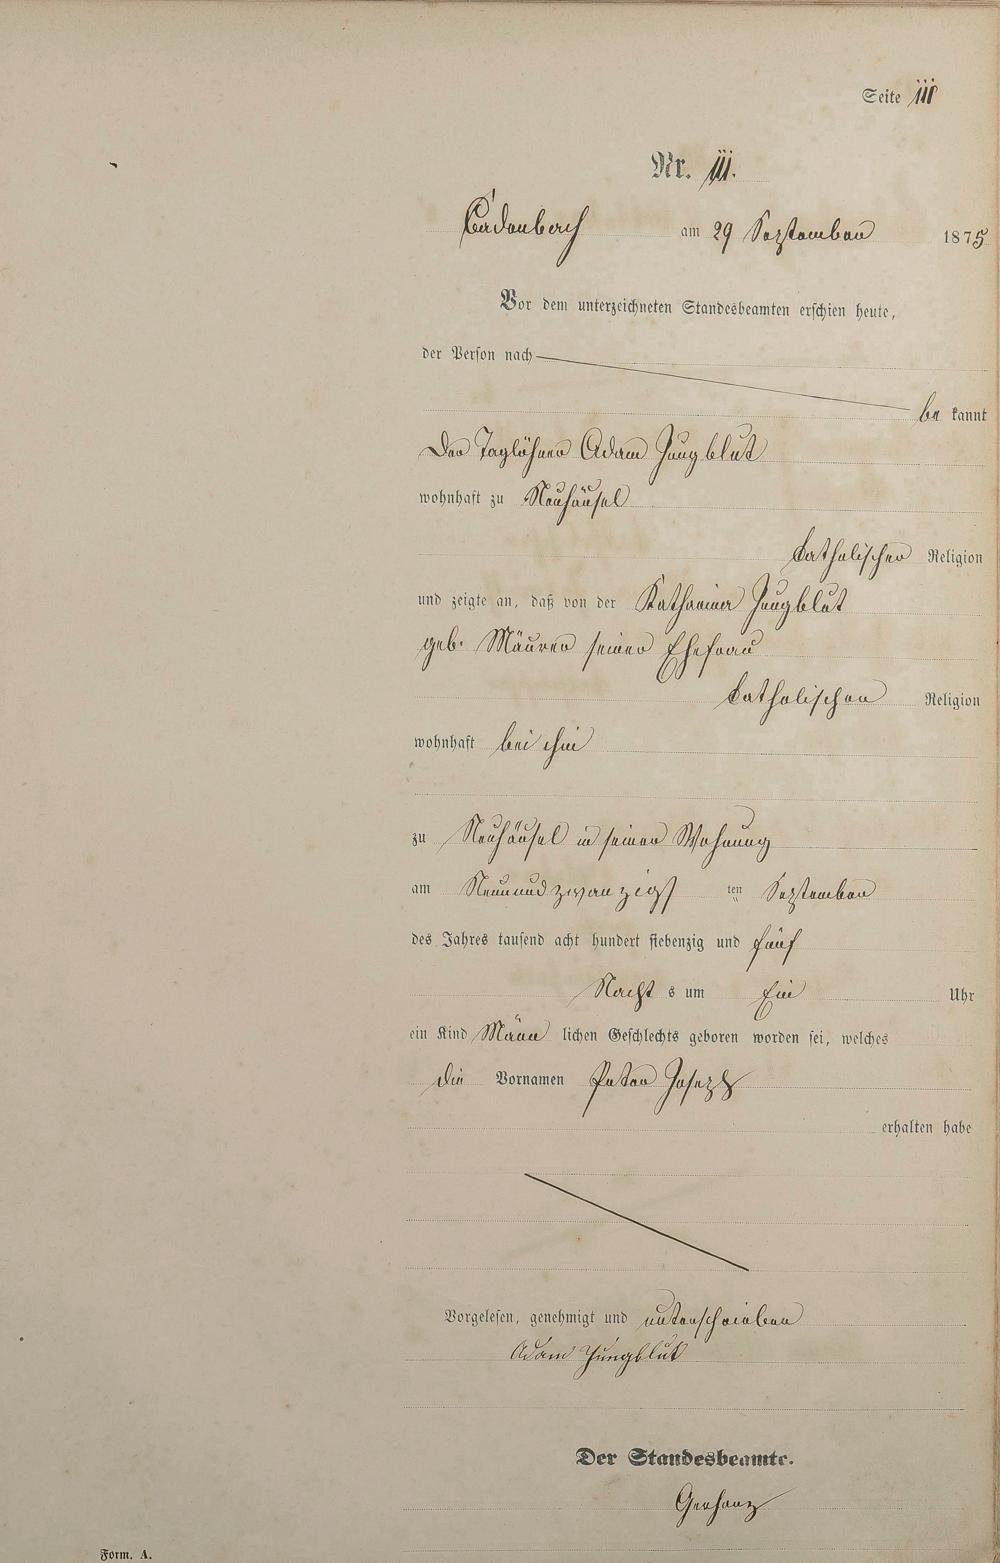 Seite III
Nr. III.
Cadenbach am 29 September 1875
Vor dem unterzeichneten Standesbeamten erschien heute,
der Person nach
be kannt
Der Taglöhner Adam Jungblut
wohnhaft zu Neuhäusel
katholischer Religion
und zeigte an, daß von der Katharina Jungblut
geb. Mäurer seiner Ehefrau
katholischen Religion
wohnhaft bei ihm
zu Neuhäusel in seiner Wohnung
am Neunundzwanzigst ten September
des Jahres tausend acht hundert siebenzig und fünf
Nacht s um Ein Uhr
ein Kind Männ lichen Geschlechts geboren worden sei, welches
die Vornamen Peter Joseph
erhalten habe
Vorgelesen, genehmigt und unterschrieben
Adam Jungblut
Der Standesbeamte.
Gerharz
Form. A.